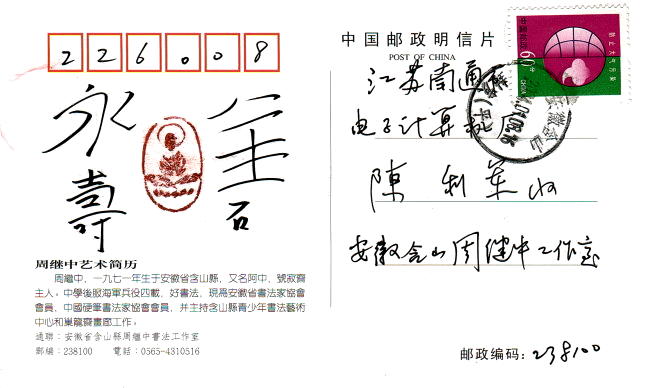 226008
永壽
周继中艺术简历
周繼中，一九七一年生于安徽省含山縣，又名阿中，號寂齋
主人。中學後服海軍兵役四載，好書法，現爲安徽省書法家協會
會員、中國硬筆書法家協會會員，并主持含山縣青少年書法藝術
中心和巢龍齋畫廊工作。
通聯：安徽省含山縣周繼中書法工作室
郵編：238100 電話：0565-4310516
中国邮政明信片
POST OF CHINA
中国邮政
60分
CHINA
防止大气污染
安徽含山
江苏南通
电子计算机厂
陳利華收
安徽含山周继中工作室
邮政编码：238100